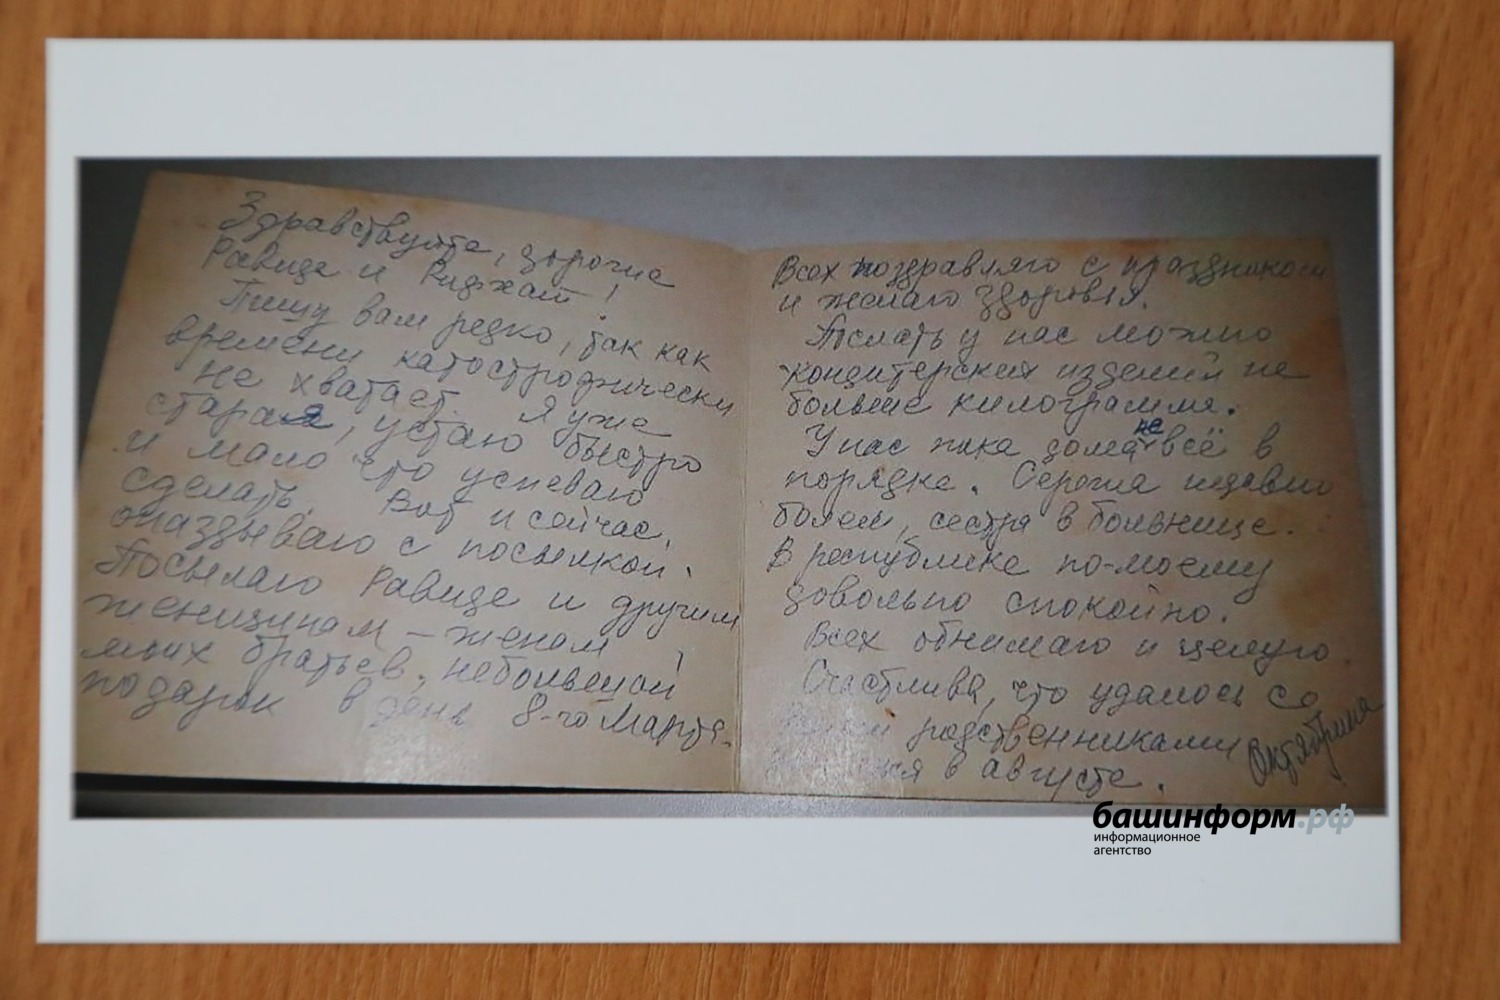 Здравствуйте, дорогие
Равица и Ридхат!
Пишу вам редко, так как
времени катострофически
не хватает. Я уже
старая, устаю быстро
и мало что успеваю
сделать. Вот и сейчас,
опаздываю с посылкой.
Посылаю Равице и другим
женщинам – женам
моих братьев, небольшой
подарок в день 8-го Марта.
Всех поздравляю с праздником
и желаю здоровья.
Послать у нас можно
кондитерских изделий не
больше килограмма.
У нас пака дома не всё в
порядке. Сережа недавно
болел, сестра в больнице.
В республике по-моему
довольно спокойно.
Всех обнимаю и целую.
Счастлива, что удалось со
родственниками
в августе.
Октябрина
башинформ.рф
информационное
агентство